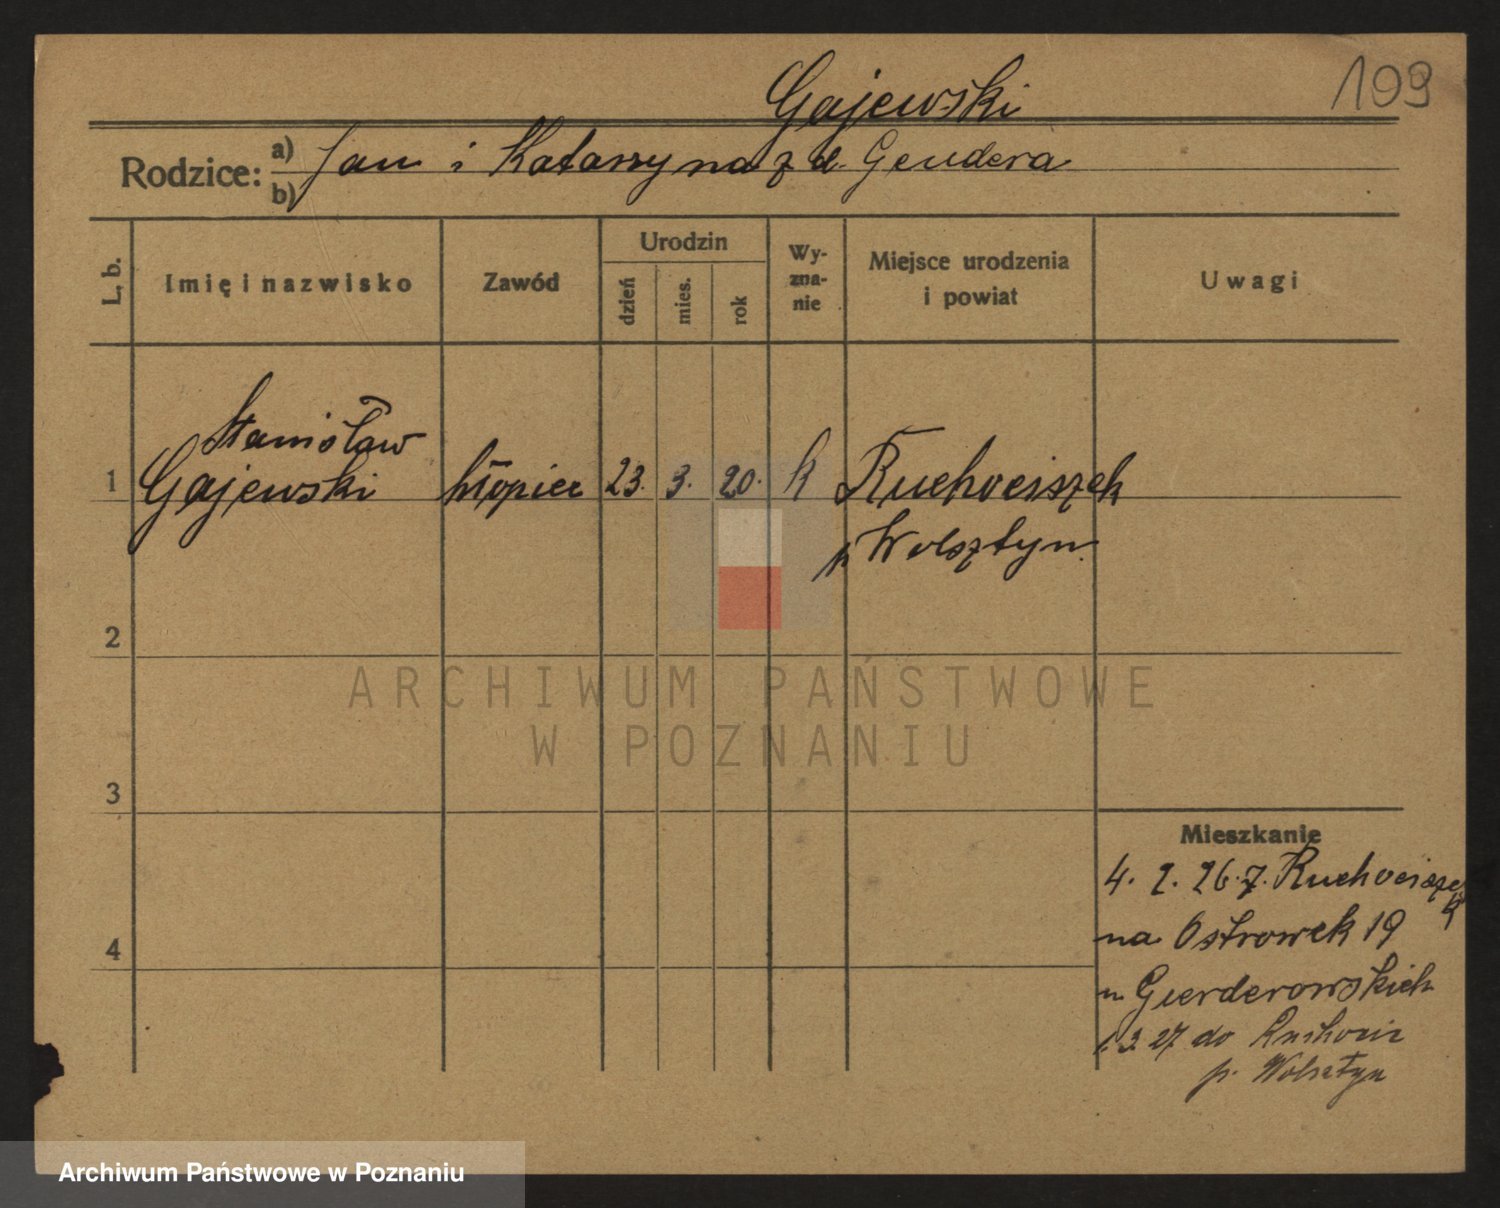 Gajewski
109
Rodzice: a) Jan i Katarzyna z d. Gendera
b)
L. b.
Imię i nazwisko
Zawód
Urodzin
dzień
mies.
rok
Wy-
zna-
nie
Miejsce urodzenia
i powiat
Uwagi
Stanisław
1 Gajewski hłopiec 23. 3. 20. k Ruchociszek
p Wolsztyn.
2
ARCHIWUM PAŃSTWOWE
W POZNANIU
3
Mieszkanie
4. 2. 26. z. Ruchociszek
4
na Ostrowek 19
u Gierderowskich
1. 3. 27 do Ruchocic
p. Wolsztyn
Archiwum Państwowe w Poznaniu